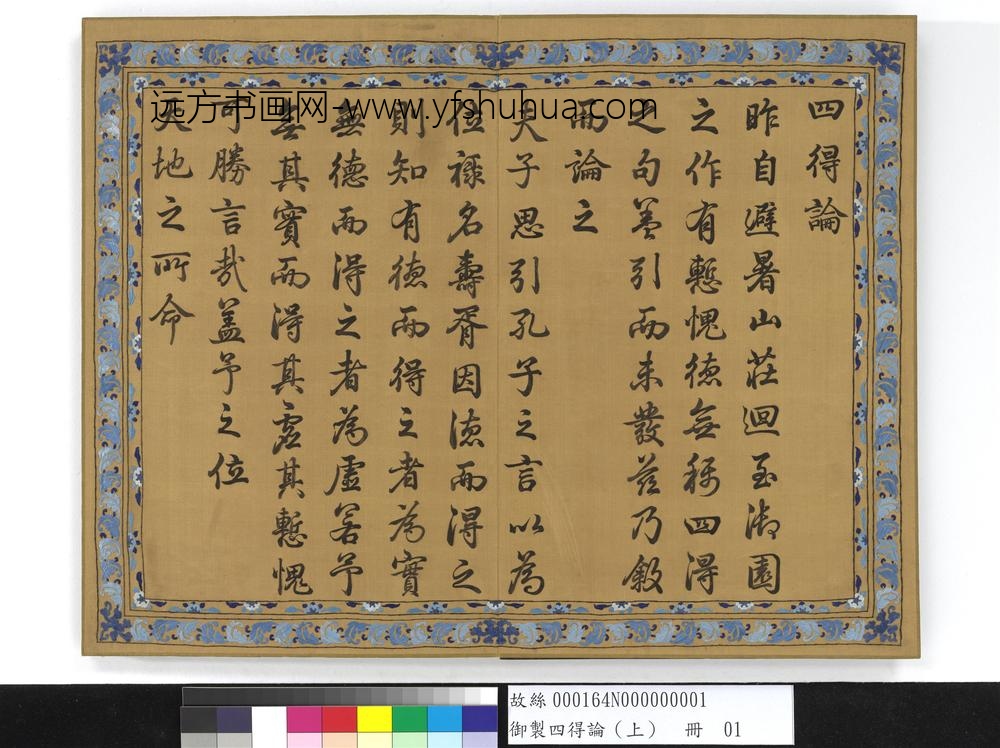 四得論
昨自避暑山莊迴至御園
之作有慙愧德無稱四得
之句蓋引而未發茲乃敘
而論之
夫子思引孔子之言以為
位祿名壽胥因德而得之
則知有德而得之者為實
無德而得之者為虛若予
無其實而得其虛其慙愧
可勝言哉蓋予之位
天地之所命
远方书画网-www.yfshuhua.com
故絲 000164N000000001
御製四得論（上） 冊 01